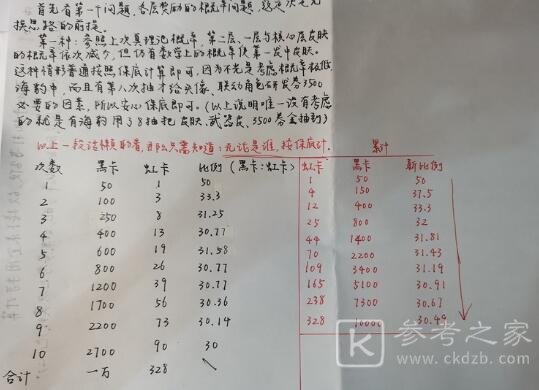 首先有第一个问题，各层奖励的概率问题，这是决定兑
换思路的前提。
第一种：参照上次真理池概率，第一层、一层与核心层皮肤
的概率依次减少，但仍有数学上的概率使第一发中皮肤。
这种情形普通按照保底计算即可，因为不光是考虑概率极低
海豹中，而且有第八次抽才给头像，联动角色研发券3500
必要的因素，所以安心保底即可。(以上说明唯一没有考虑
的就是有海豹用了8抽把皮肤、武器皮、3500券全抽到了)
以上一段话懒的看，那么只需知道：无论是谁，按保底计。
累计
次数 黑卡 虹卡 比例(黑卡:虹卡) 虹卡 黑卡 新比例
1 50 1 50 1 50 50
2 100 3 33.3 4 150 37.5
3 250 8 31.25 12 400 33.3
4 400 13 30.77 25 800 32
5 600 19 31.58 44 1400 31.81
6 800 26 30.77 70 2200 31.43
7 1200 39 30.77 109 3400 31.19
8 1700 56 30.36 165 5100 30.91
9 2200 73 30.14 238 7300 30.67
10 2700 90 30 328 10000 30.49
合计 一万 328
参考之家
www.ckdzb.com